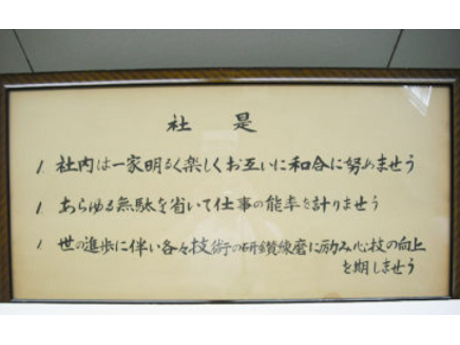 社是
1. 社内は一家明るく楽しくお互いに和合に努めませう
1. あらゆる無駄を省いて仕事の能率を計りませう
1. 世の進歩に伴い各々技術の研鑽練磨に励み心技の向上
を期しませう